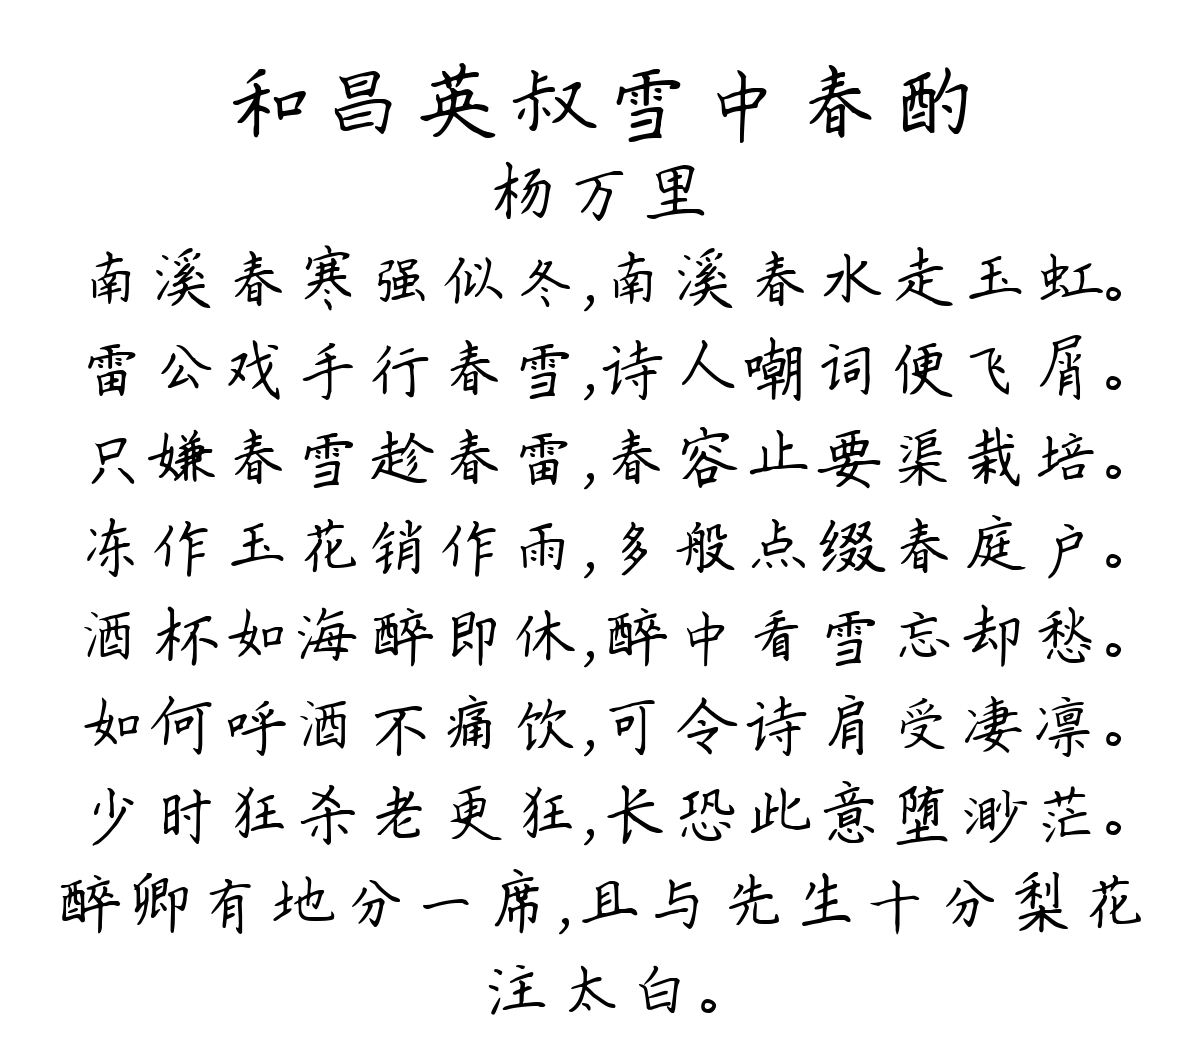 和昌英叔雪中春酌
杨万里
南溪春寒强似冬,南溪春水走玉虹。
雷公戏手行春雪,诗人嘲词便飞屑。
只嫌春雪趁春雷,春容止要渠栽培。
冻作玉花销作雨,多般点缀春庭户。
酒杯如海醉即休,醉中看雪忘却愁。
如何呼酒不痛饮,可令诗肩受凄凛。
少时狂杀老更狂,长恐此意堕渺茫。
醉卿有地分一席,且与先生十分梨花
注太白。